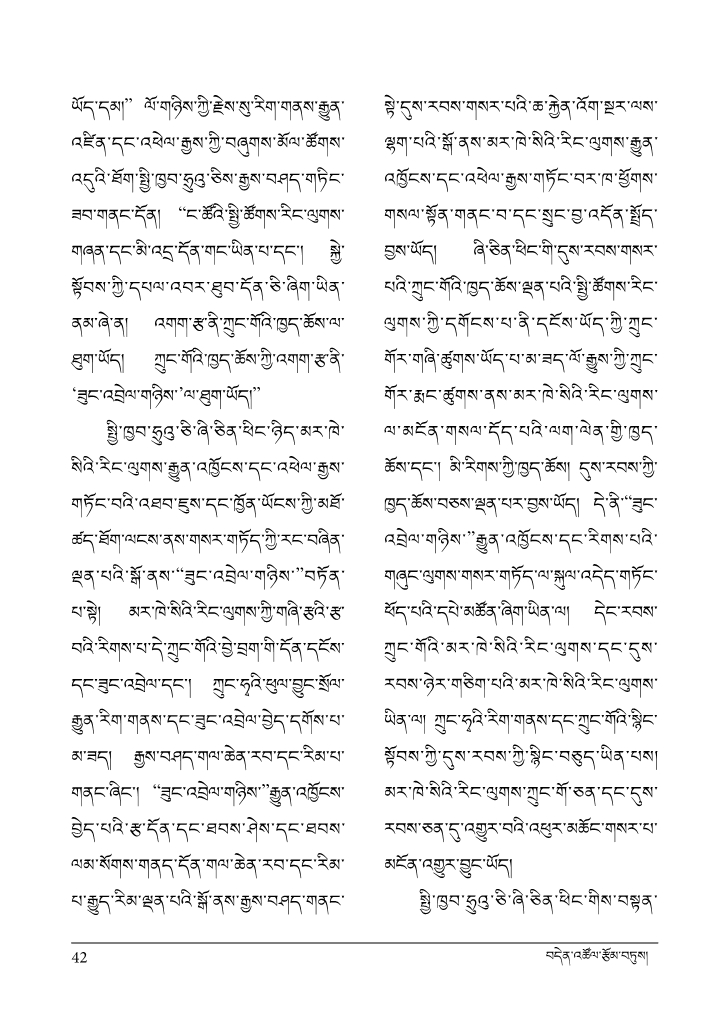 ཡོད་དམ།” ལོ་གཉིས་ཀྱི་རྗེས་སུ་རིག་གནས་རྒྱུན་
འཛིན་དང་འཕེལ་རྒྱས་ཀྱི་བཞུགས་མོལ་ཚོགས་
འདུའི་ཐོག་སྤྱི་ཁྱབ་ཧྲུའུ་ཅིས་རྒྱས་བཤད་གཏིང་
ཟབ་གནང་དོན། “ང་ཚོའི་སྤྱི་ཚོགས་རིང་ལུགས་
གཞན་དང་མི་འདྲ་དོན་གང་ཡིན་པ་དང་། སྐྱེ་
སྟོབས་ཀྱི་དཔལ་འབར་ཐུབ་དོན་ཅི་ཞིག་ཡིན་
ནམ་ཞེ་ན། འགག་རྩ་ནི་ཀྲུང་གོའི་ཁྱད་ཆོས་ལ་
ཐུག་ཡོད། ཀྲུང་གོའི་ཁྱད་ཆོས་ཀྱི་འགག་རྩ་ནི་
‘ཟུང་འབྲེལ་གཉིས་’ལ་ཐུག་ཡོད།”
སྤྱི་ཁྱབ་ཧྲུའུ་ཅི་ཞི་ཅིན་ཕིང་ཉིད་མར་ཁེ་
སིའི་རིང་ལུགས་རྒྱུན་འཁྱོངས་དང་འཕེལ་རྒྱས་
གཏོང་བའི་འཐབ་ཇུས་དང་ཁྱོན་ཡོངས་ཀྱི་མཐོ་
ཚད་ཐོག་ལངས་ནས་གསར་གཏོད་ཀྱི་རང་བཞིན་
ལྡན་པའི་སྒོ་ནས་“ཟུང་འབྲེལ་གཉིས་”བཏོན་
པ་སྟེ། མར་ཁེ་སིའི་རིང་ལུགས་ཀྱི་གཞི་རྩའི་རྩ་
བའི་རིགས་པ་དེ་ཀྲུང་གོའི་བྱེ་བྲག་གི་དོན་དངོས་
དང་ཟུང་འབྲེལ་དང་། ཀྲུང་ཧྭའི་ཕུལ་བྱུང་སྲོལ་
རྒྱུན་རིག་གནས་དང་ཟུང་འབྲེལ་བྱེད་དགོས་པ་
མ་ཟད། རྒྱས་བཤད་གལ་ཆེན་རབ་དང་རིམ་པ་
གནང་ཞིང་། “ཟུང་འབྲེལ་གཉིས་”རྒྱུན་འཁྱོངས་
བྱེད་པའི་རྩ་དོན་དང་ཐབས་ཤེས་དང་ཐབས་
ལམ་སོགས་གནད་དོན་གལ་ཆེན་རབ་དང་རིམ་
པ་རྒྱུད་རིམ་ལྡན་པའི་སྒོ་ནས་རྒྱས་བཤད་གནང་
སྟེ་དུས་རབས་གསར་པའི་ཆ་རྐྱེན་འོག་སྔར་ལས་
ལྷག་པའི་སྒོ་ནས་མར་ཁེ་སིའི་རིང་ལུགས་རྒྱུན་
འཁྱོངས་དང་འཕེལ་རྒྱས་གཏོང་བར་ཁ་ཕྱོགས་
གསལ་སྟོན་གནང་བ་དང་སྲུང་བྱ་འདོན་སྤྲོད་
བྱས་ཡོད། ཞི་ཅིན་ཕིང་གི་དུས་རབས་གསར་
པའི་ཀྲུང་གོའི་ཁྱད་ཆོས་ལྡན་པའི་སྤྱི་ཚོགས་རིང་
ལུགས་ཀྱི་དགོངས་པ་ནི་དངོས་ཡོད་ཀྱི་ཀྲུང་
གོར་གཞི་ཚུགས་ཡོད་པ་མ་ཟད་ལོ་རྒྱུས་ཀྱི་ཀྲུང་
གོར་རྨང་ཚུགས་ནས་མར་ཁེ་སིའི་རིང་ལུགས་
ལ་མངོན་གསལ་དོད་པའི་ལག་ལེན་གྱི་ཁྱད་
ཆོས་དང་། མི་རིགས་ཀྱི་ཁྱད་ཆོས། དུས་རབས་ཀྱི་
ཁྱད་ཆོས་བཅས་ལྡན་པར་བྱས་ཡོད། དེ་ནི་“ཟུང་
འབྲེལ་གཉིས་”རྒྱུན་འཁྱོངས་དང་རིགས་པའི་
གཞུང་ལུགས་གསར་གཏོད་ལ་སྐུལ་འདེད་གཏོང་
ཕོད་པའི་དཔེ་མཚོན་ཞིག་ཡིན་ལ། དེང་རབས་
ཀྲུང་གོའི་མར་ཁེ་སིའི་རིང་ལུགས་དང་དུས་
རབས་ཉེར་གཅིག་པའི་མར་ཁེ་སིའི་རིང་ལུགས་
ཡིན་ལ། ཀྲུང་ཧྭའི་རིག་གནས་དང་ཀྲུང་གོའི་སྙིང་
སྟོབས་ཀྱི་དུས་རབས་ཀྱི་སྙིང་བཅུད་ཡིན་པས།
མར་ཁེ་སིའི་རིང་ལུགས་ཀྲུང་གོ་ཅན་དང་དུས་
རབས་ཅན་དུ་འགྱུར་བའི་འཕུར་མཆོང་གསར་པ་
མངོན་འགྱུར་བྱུང་ཡོད།
སྤྱི་ཁྱབ་ཧྲུའུ་ཅི་ཞི་ཅིན་ཕིང་གིས་བསྟན་
42
བདེན་འཚོལ་རྩོམ་བཏུས།